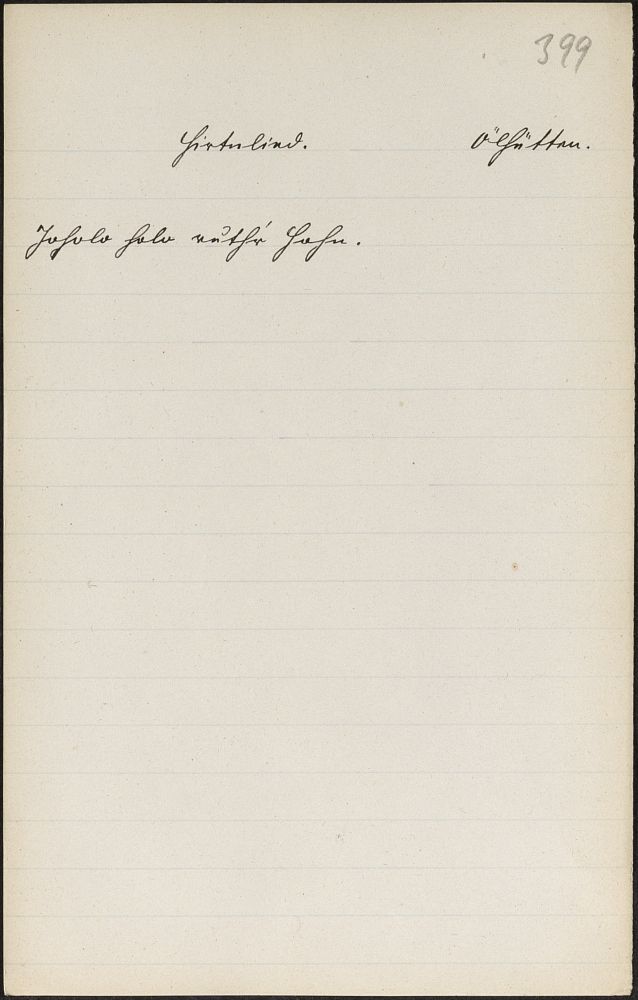 399
Hirtnlied. Ölhütten.
Joholo holo ruthr Hahn.